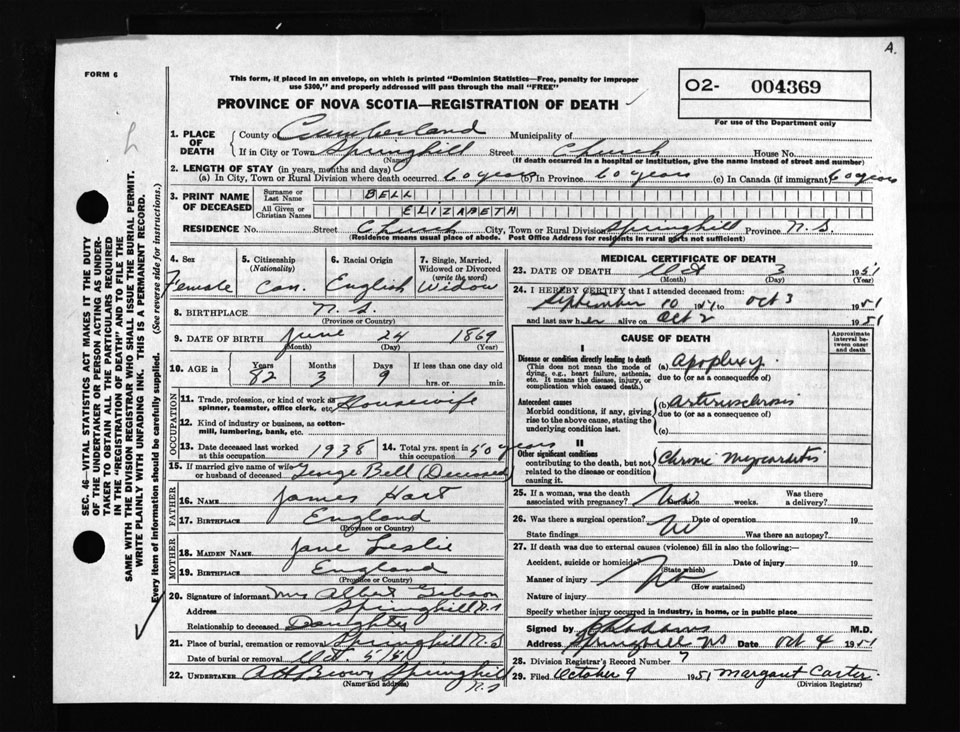 A.
FORM 6
This form, if placed in an envelope, on which is printed "Dominion Statistics—Free, penalty for improper
use $300," and properly addressed will pass through the mail "FREE"
O2- 004369
For use of the Department only
PROVINCE OF NOVA SCOTIA—REGISTRATION OF DEATH
SEC. 46—VITAL STATISTICS ACT MAKES IT THE DUTY
OF THE UNDERTAKER OR PERSON ACTING AS UNDER-
TAKER TO OBTAIN ALL THE PARTICULARS REQUIRED
IN THE "REGISTRATION OF DEATH" AND TO FILE THE
SAME WITH THE DIVISION REGISTRAR WHO SHALL ISSUE THE BURIAL PERMIT.
WRITE PLAINLY WITH UNFADING INK. THIS IS A PERMANENT RECORD.
Every item of information should be carefully supplied. (See reverse side for instructions.)
1. PLACE OF DEATH County of Cumberland Municipality of
If in City or Town Springhill Street Church House No.
(Name) (If death occurred in a hospital or institution, give the name instead of street and number)
2. LENGTH OF STAY (in years, months and days)
(a) In City, Town or Rural Division where death occurred 60 years (b) In Province 60 years (c) In Canada (if immigrant) 60 years
3. PRINT NAME OF DECEASED Surname or Last Name BELL
All Given or Christian Names ELIZABETH
RESIDENCE No. Street Church City, Town or Rural Division Springhill Province N.S.
(Residence means usual place of abode. Post Office Address for residents in rural parts not sufficient)
4. Sex Female
5. Citizenship (Nationality) Can.
6. Racial Origin English
7. Single, Married, Widowed or Divorced (write the word) Widow
8. BIRTHPLACE N.S.
(Province or Country)
9. DATE OF BIRTH June 24 1869
(Month) (Day) (Year)
10. AGE in Years 82 Months 3 Days 9 If less than one day old
hrs. or min.
OCCUPATION
11. Trade, profession, or kind of work as spinner, teamster, office clerk, etc. Housewife
12. Kind of industry or business, as cotton-mill, lumbering, bank, etc.
13. Date deceased last worked at this occupation 1938 14. Total yrs. spent in this occupation 50 years
15. If married give name of wife or husband of deceased George Bell (Deceased)
FATHER
16. NAME James Hart
17. BIRTHPLACE England
(Province or Country)
MOTHER
18. MAIDEN NAME Jane Leslie
19. BIRTHPLACE England
(Province or Country)
20. Signature of informant Mrs Albert Gibson
Address Springhill N.S
Relationship to deceased Daughter
21. Place of burial, cremation or removal Springhill N.S
Date of burial or removal Oct. 5/51
22. UNDERTAKER A H Brown Springhill N.S
(Name and address)
MEDICAL CERTIFICATE OF DEATH
23. DATE OF DEATH Oct 3 1951
(Month) (Day) (Year)
24. I HEREBY CERTIFY that I attended deceased from:
September 10 1951 to Oct 3 1951
and last saw her alive on Oct 2 1951
CAUSE OF DEATH
Approximate interval between onset and death
I
Disease or condition directly leading to death
(This does not mean the mode of dying, e.g., heart failure, asthenia, etc. It means the disease, injury, or complication which caused death.)
(a) Apoplexy.
due to (or as a consequence of)
Antecedent causes
Morbid conditions, if any, giving rise to the above cause, stating the underlying condition last.
(b) Arteriosclerosis
due to (or as a consequence of)
(c)
II
Other significant conditions
contributing to the death, but not related to the disease or condition causing it.
Chronic Myocarditis
25. If a woman, was the death associated with pregnancy? No Duration weeks. Was there a delivery?
26. Was there a surgical operation? No Date of operation 19
State findings Was there an autopsy?
27. If death was due to external causes (violence) fill in also the following:—
Accident, suicide or homicide? Date of injury 19
(State which)
Manner of injury No
(How sustained)
Nature of injury
Specify whether injury occurred in industry, in home, or in public place
Signed by M.D.
Address Springhill NS Date Oct 4 1951
28. Division Registrar's Record Number 7
29. Filed October 9 1951 Margaret Carter
(Division Registrar)